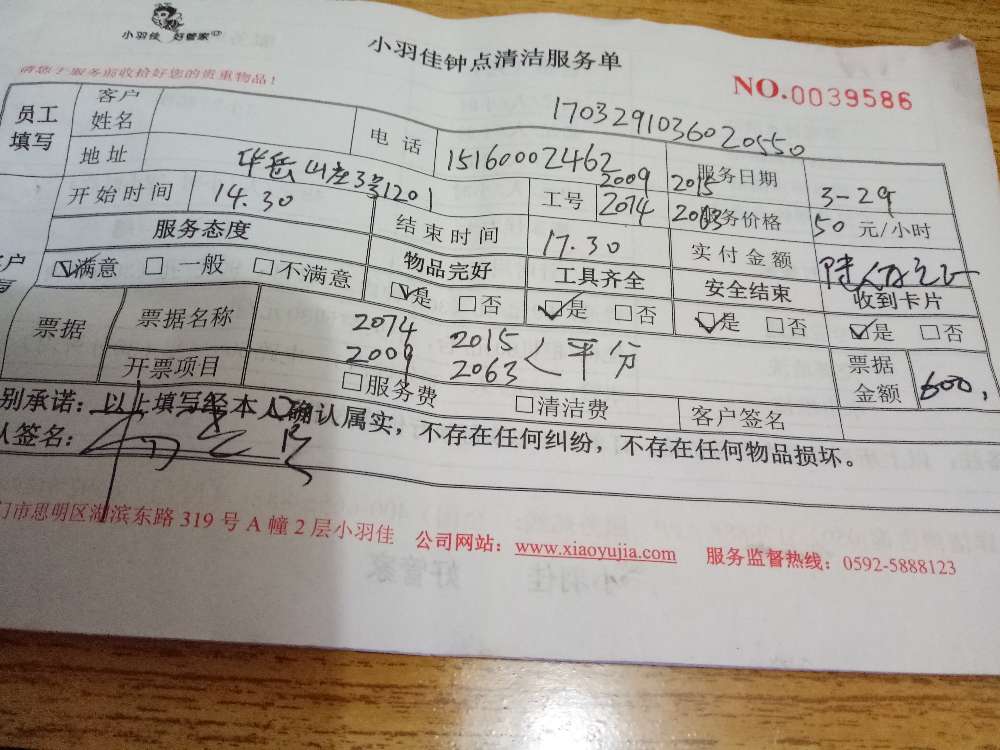 小羽佳 好管家
小羽佳钟点清洁服务单
请您于服务前收拾好您的贵重物品!
NO.0039586
170329103602 20550
员工填写 客户姓名 电话 15160002462 服务日期 3-29
地址 华岳山庄3号1201 工号 2009 2015 2074 2063 服务价格 50 元/小时
开始时间 14.30 结束时间 17.30 实付金额
服务态度 物品完好 工具齐全 安全结束 收到卡片
☑满意 □一般 □不满意 ☑是 □否 ☑是 □否 ☑是 □否 ☑是 □否
票据 票据名称 2074 2015 平分 票据金额 600,
2009 2063
开票项目 □服务费 □清洁费 客户签名
别承诺：以上填写经本人确认属实，不存在任何纠纷，不存在任何物品损坏。
人签名：
门市思明区湖滨东路 319 号 A 幢 2 层小羽佳 公司网站：www.xiaoyujia.com 服务监督热线：0592-5888123